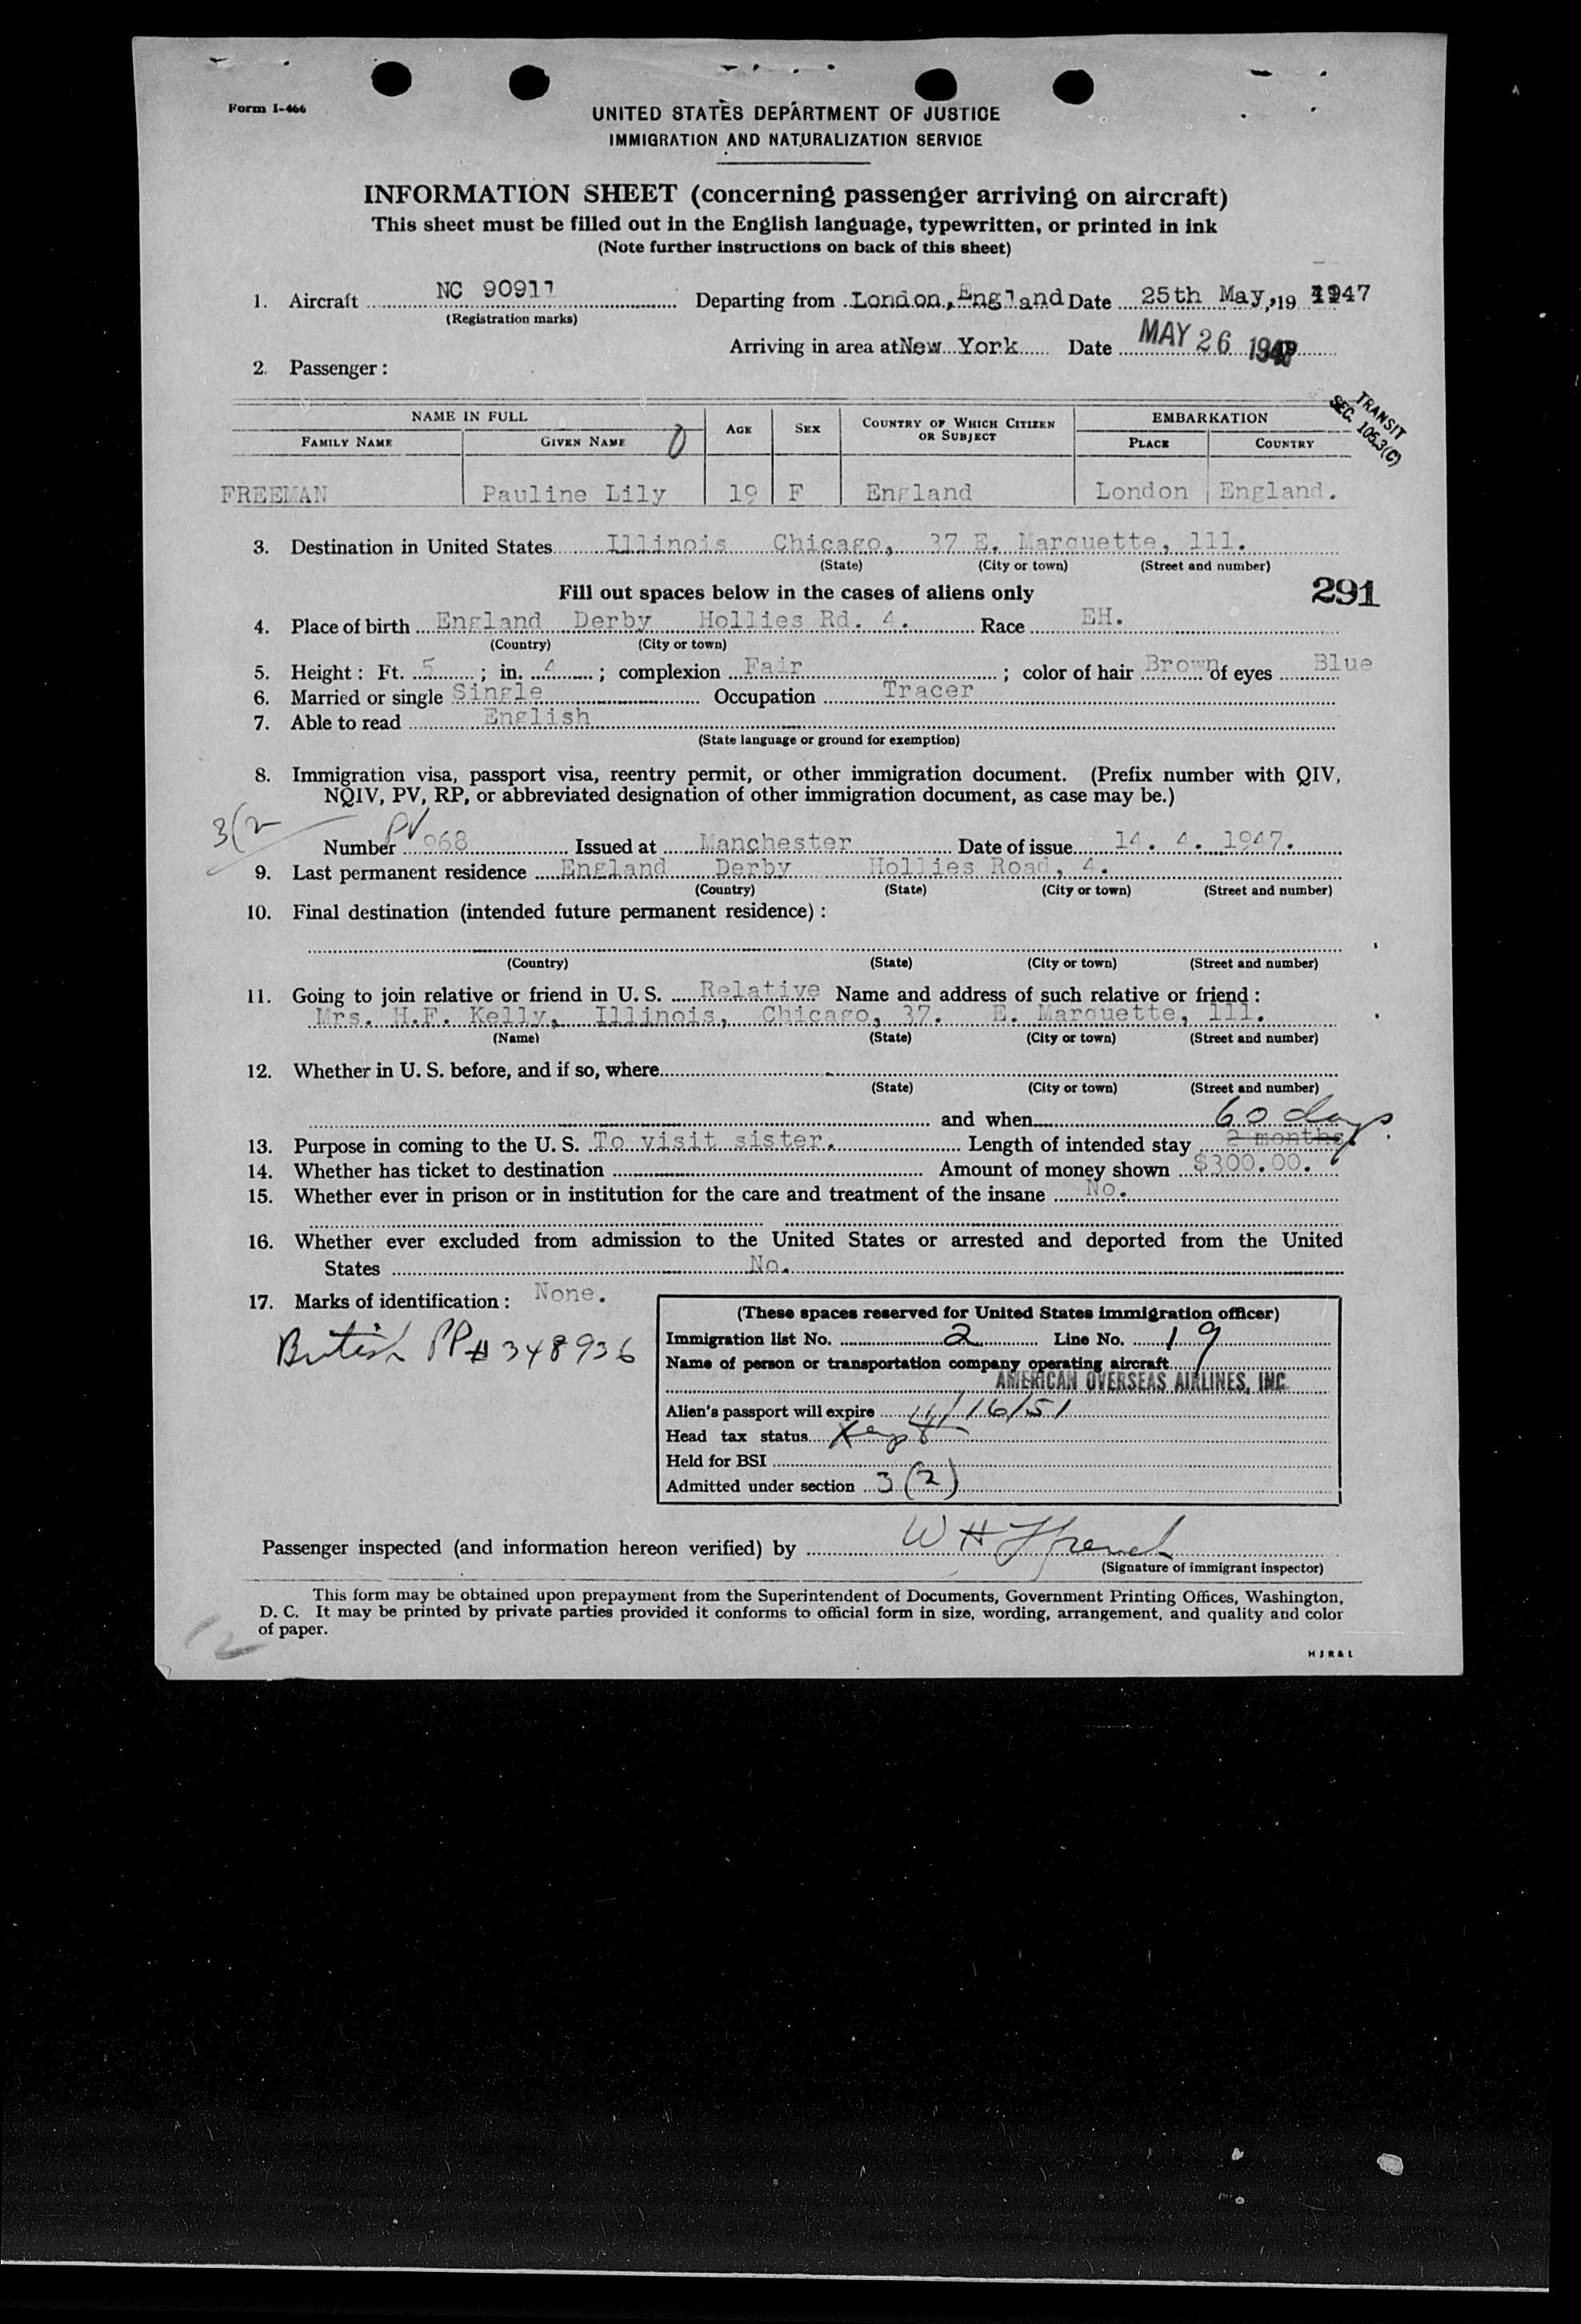 Form I-466
UNITED STATES DEPARTMENT OF JUSTICE
IMMIGRATION AND NATURALIZATION SERVICE
INFORMATION SHEET (concerning passenger arriving on aircraft)
This sheet must be filled out in the English language, typewritten, or printed in ink
(Note further instructions on back of this sheet)
1. Aircraft NC 90911 Departing from London, England Date 25th May, 19 1947
(Registration marks)
Arriving in area at New York Date MAY 26 1947
2. Passenger:
TRANSIT
SEC. 105.3(C)
NAME IN FULL AGE SEX COUNTRY OF WHICH CITIZEN OR SUBJECT EMBARKATION
FAMILY NAME GIVEN NAME PLACE COUNTRY
FREEMAN Pauline Lily 19 F England London England.
3. Destination in United States Illinois Chicago, 37 E. Marquette, 111.
(State) (City or town) (Street and number)
Fill out spaces below in the cases of aliens only 291
4. Place of birth England Derby Hollies Rd. 4. Race EH.
(Country) (City or town)
5. Height: Ft. 5; in. 4; complexion Fair; color of hair Brown of eyes Blue
6. Married or single Single Occupation Tracer
7. Able to read English
(State language or ground for exemption)
8. Immigration visa, passport visa, reentry permit, or other immigration document. (Prefix number with QIV,
NQIV, PV, RP, or abbreviated designation of other immigration document, as case may be.)
3(2
Number PV 968 Issued at Manchester Date of issue 14. 4. 1947.
9. Last permanent residence England Derby Hollies Road, 4.
(Country) (State) (City or town) (Street and number)
10. Final destination (intended future permanent residence):
(Country) (State) (City or town) (Street and number)
11. Going to join relative or friend in U. S. Relative Name and address of such relative or friend:
Mrs. H.F. Kelly, Illinois, Chicago, 37. E. Marquette, 111.
(Name) (State) (City or town) (Street and number)
12. Whether in U. S. before, and if so, where
(State) (City or town) (Street and number)
and when 60 days.
13. Purpose in coming to the U. S. To visit sister. Length of intended stay 2 months.
14. Whether has ticket to destination Amount of money shown $300.00.
15. Whether ever in prison or in institution for the care and treatment of the insane No.
16. Whether ever excluded from admission to the United States or arrested and deported from the United
States No.
17. Marks of identification: None.
British PP# 348936
(These spaces reserved for United States immigration officer)
Immigration list No. 2 Line No. 19
Name of person or transportation company operating aircraft
AMERICAN OVERSEAS AIRLINES, INC.
Alien's passport will expire 16/51
Head tax status
Held for BSI
Admitted under section 3 (2)
Passenger inspected (and information hereon verified) by W H Ffrench
(Signature of immigrant inspector)
This form may be obtained upon prepayment from the Superintendent of Documents, Government Printing Offices, Washington,
D. C. It may be printed by private parties provided it conforms to official form in size, wording, arrangement, and quality and color
of paper.
12
H J R & L